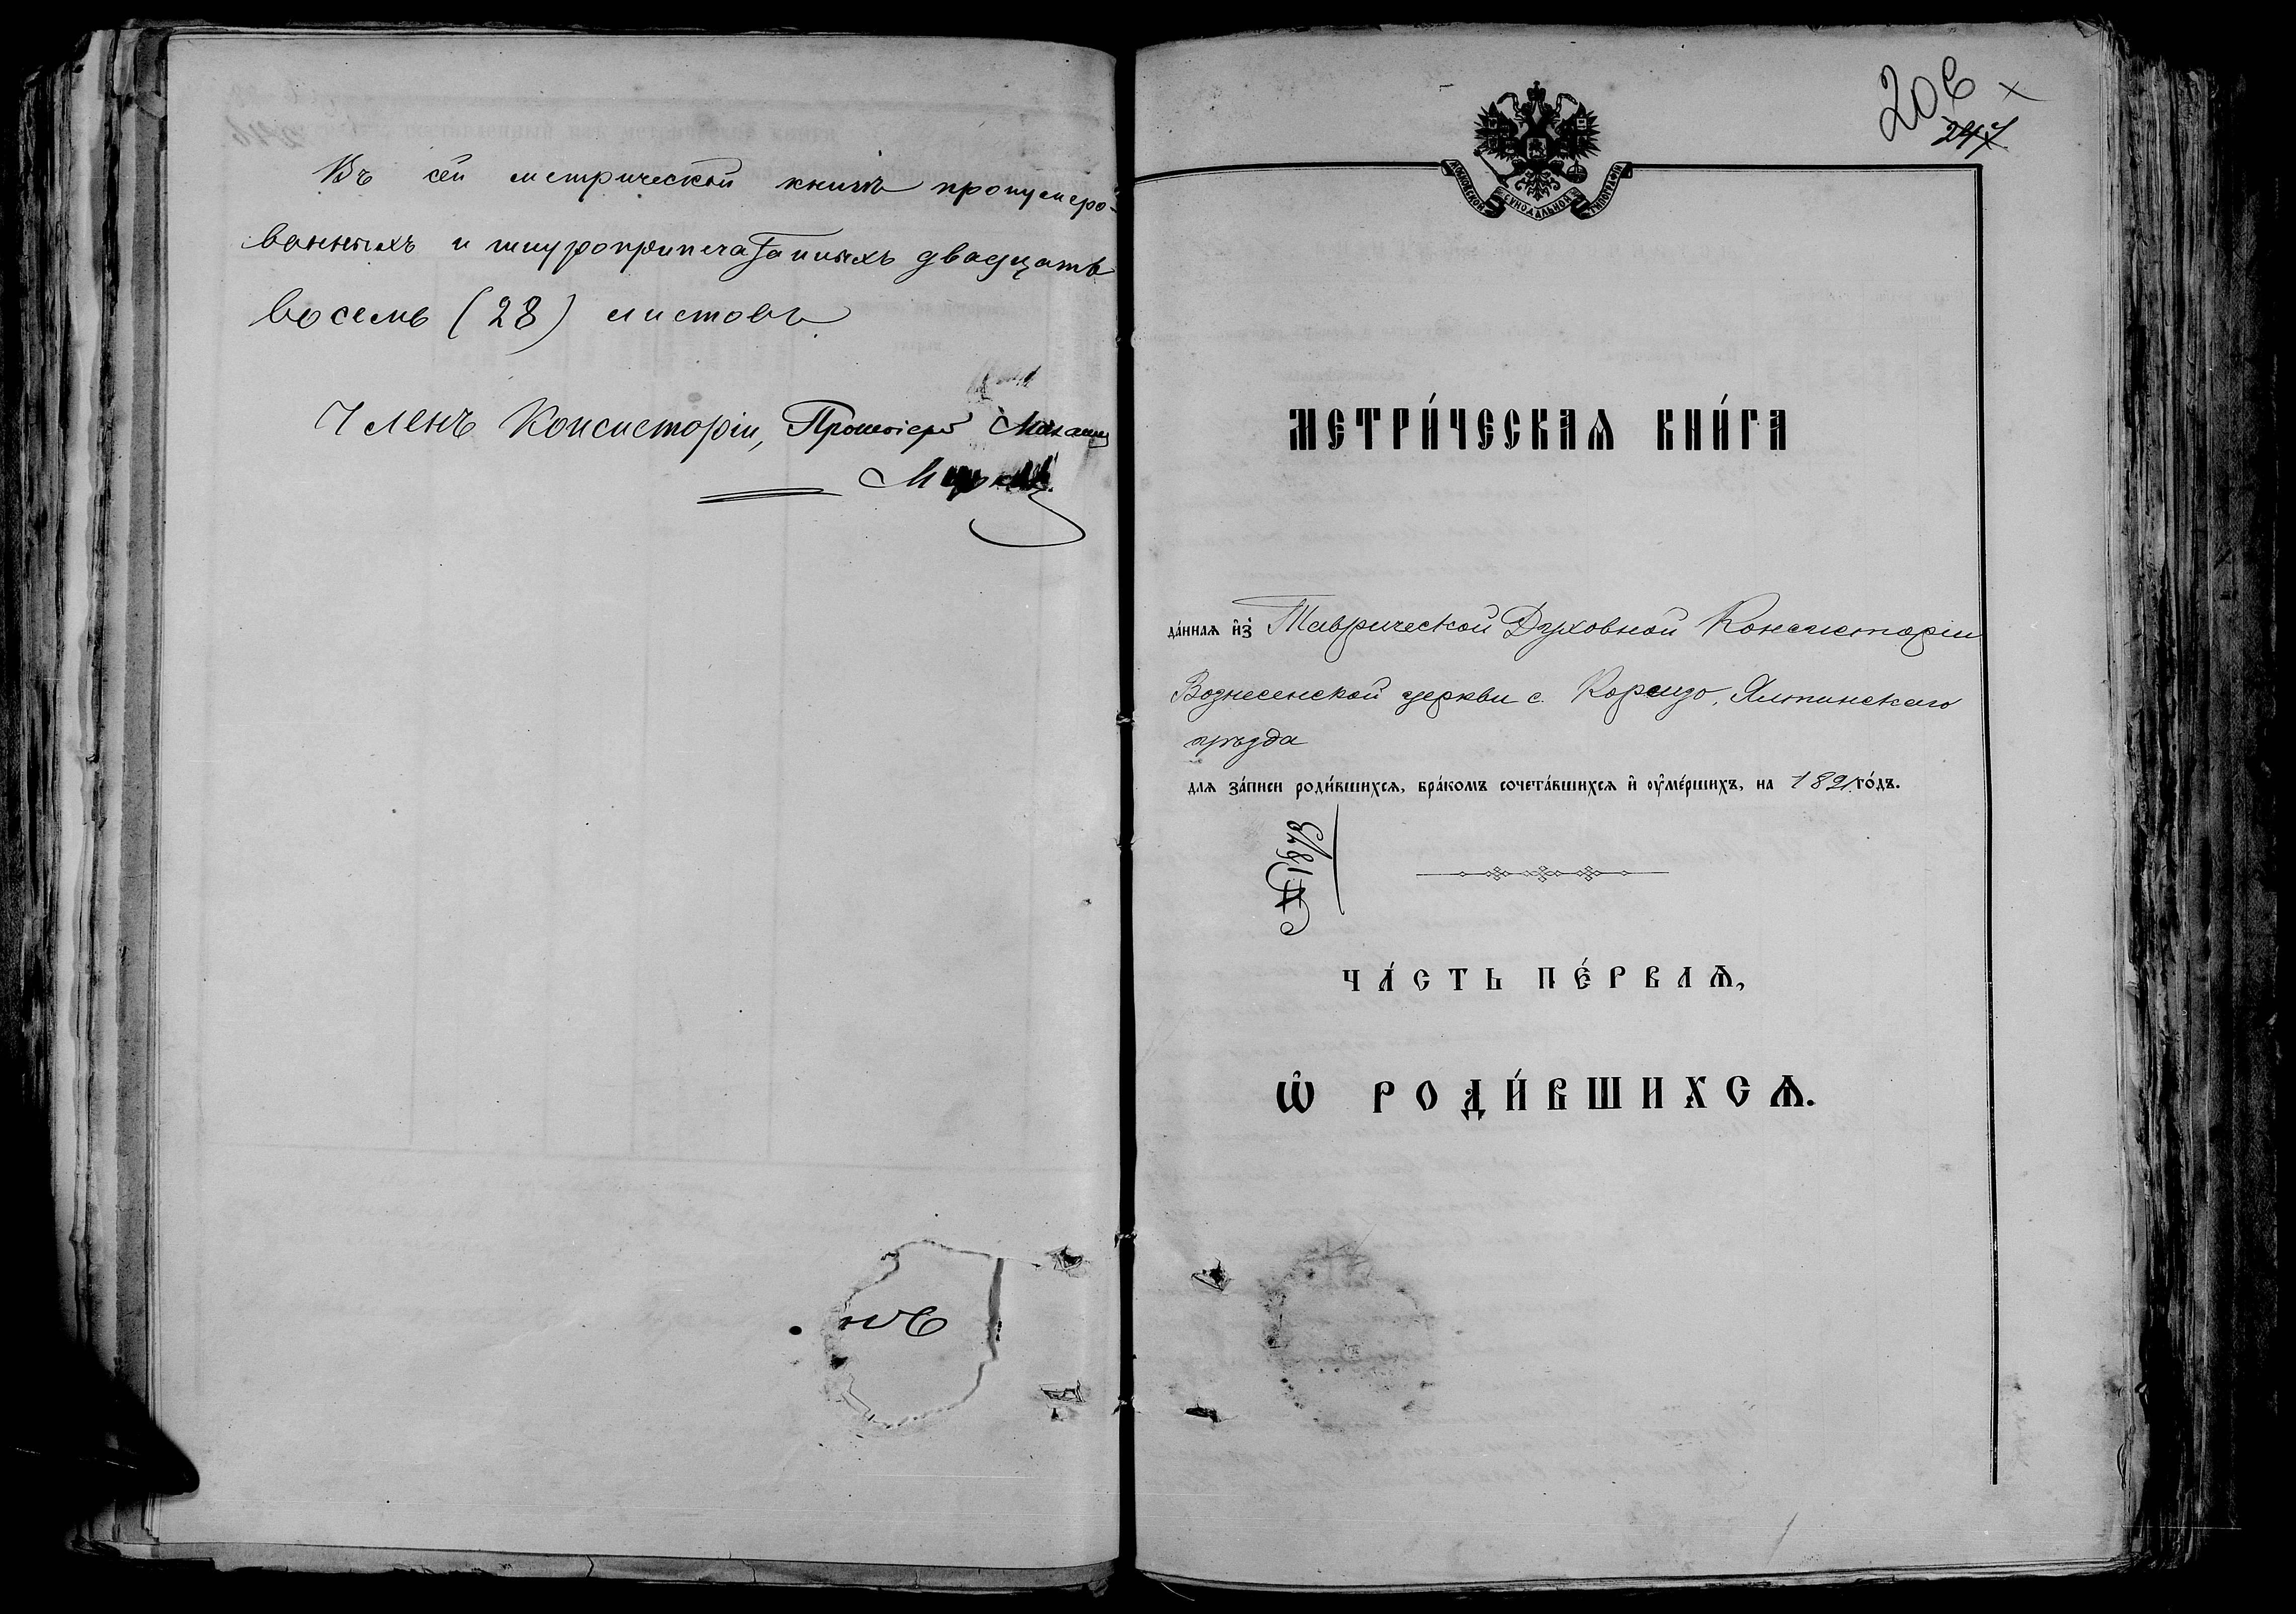 Въ сей метрической книгѣ пронумеро-
ванныхъ и шнуроприпечатанныхъ двадцать
восемь (28) листовъ
Членъ Консисторіи, Протоіерей Михаилъ
206
247
МОСКОВСКОЙ СѴНОДАЛЬНОЙ ТИПОГРАФІИ
МЕТРИ́ЧЕСКАѦ КНИ́ГА
да́ннаѧ и҆з̾ Таврической Духовной Консисторіи
Вознесенской церкви с. Ялтинскаго
уѣзда
длѧ за́писи роди́вшихсѧ, бра́комъ сочета́вшихсѧ и҆ ᲂу҆ме́ршихъ, на 1891 го́дъ.
ЧА́СТЬ ПЕ́РВАѦ,
Ѽ РОДИ́ВШИХСѦ.